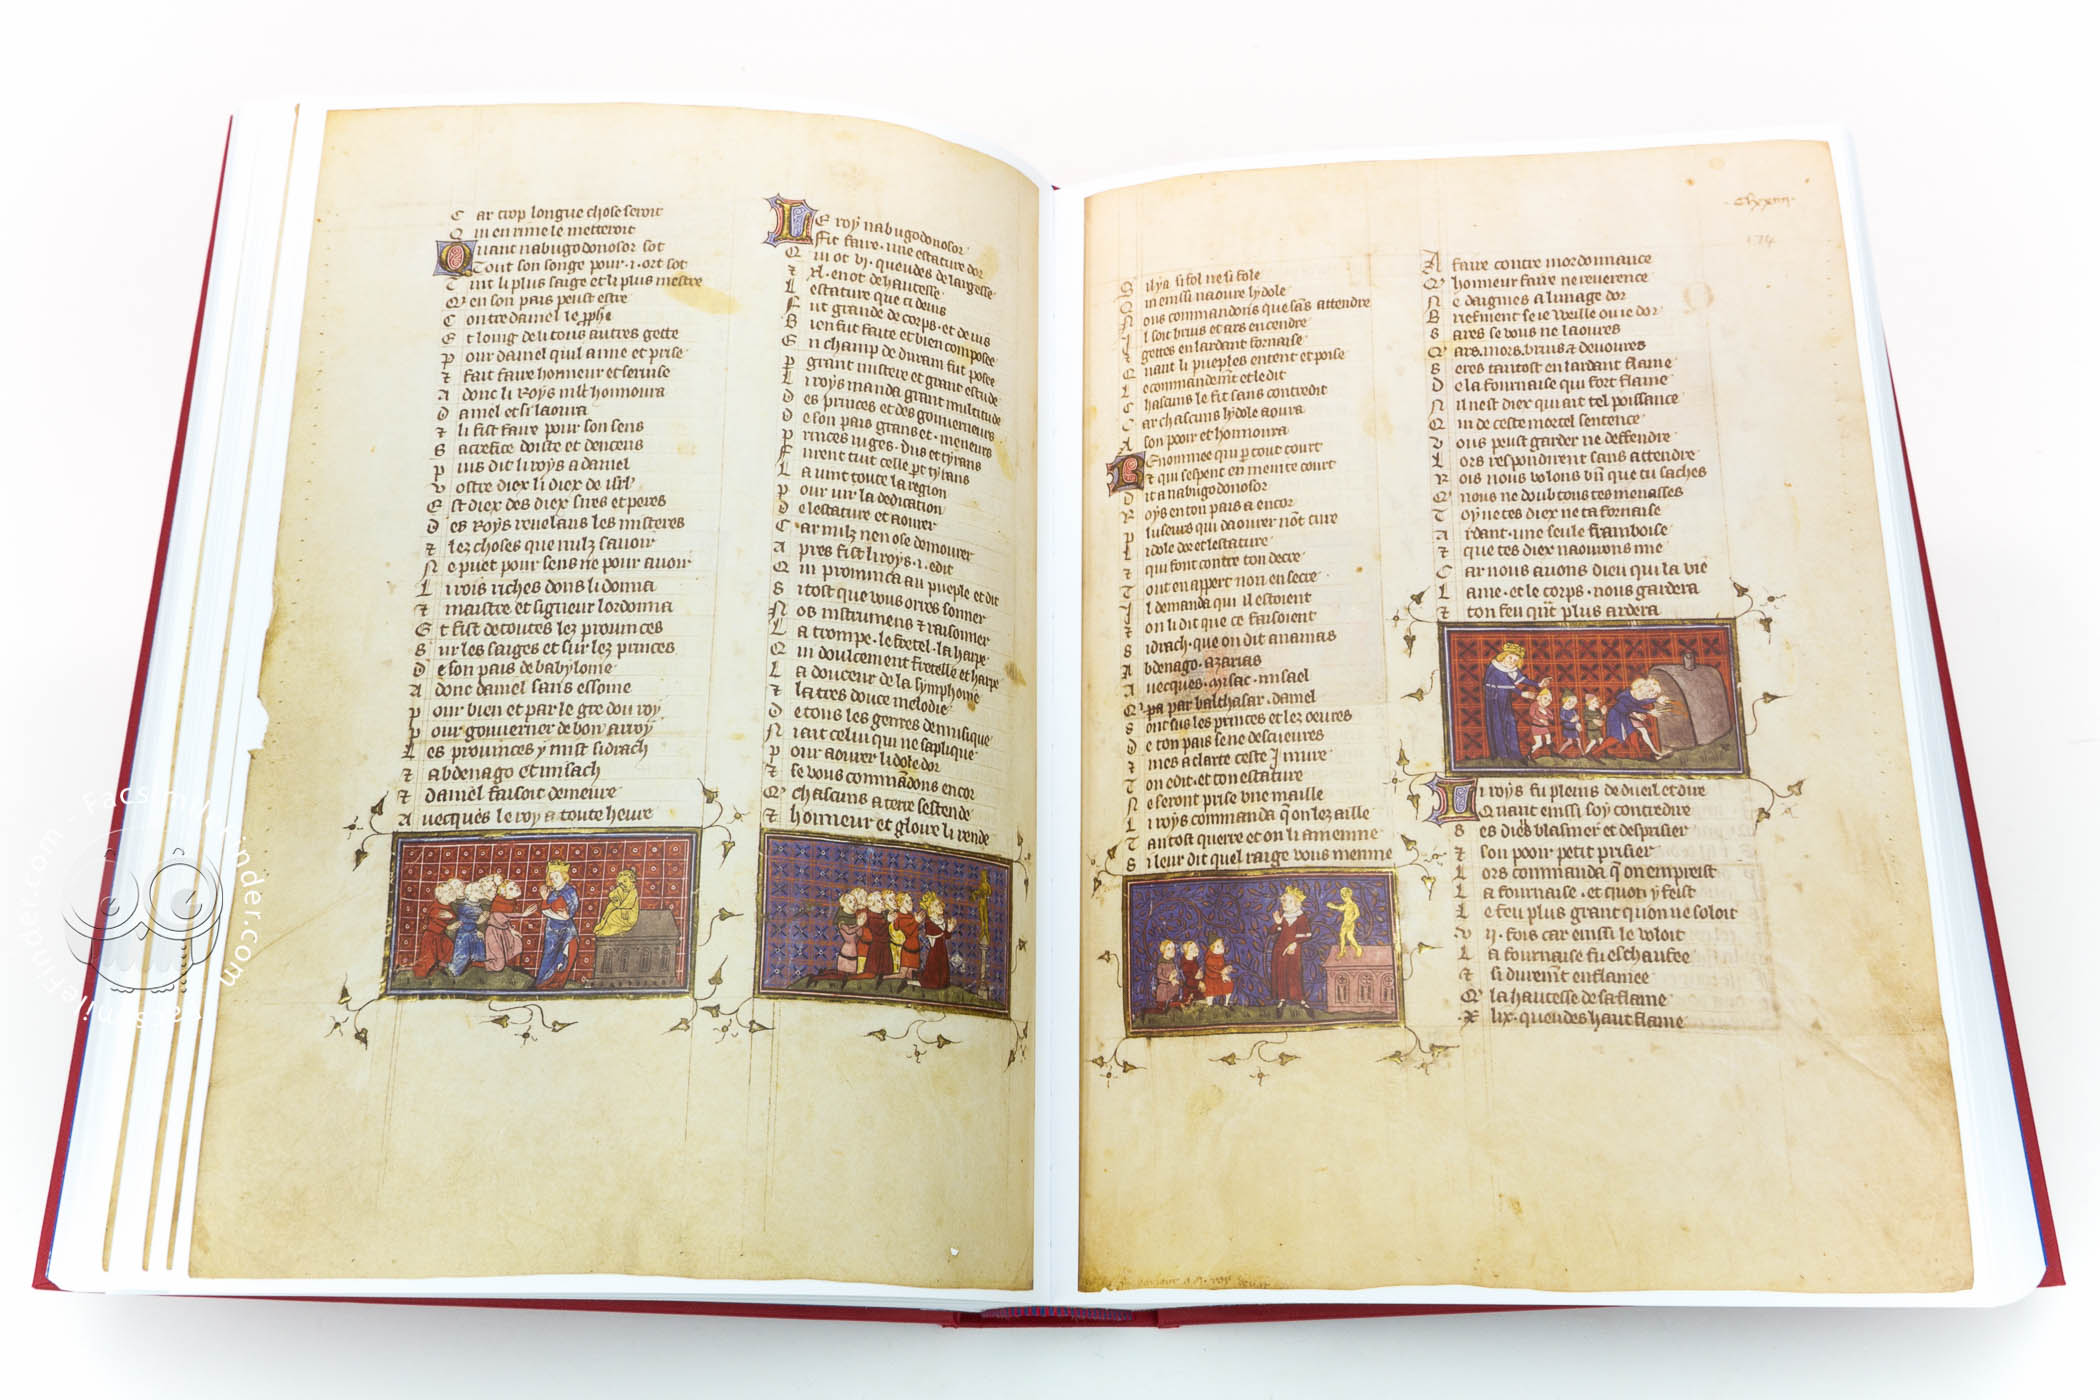 C ar trop longue chose seroit
Q ui en rime le metteroit
Quant nabugodonosor sot
Tout son songe pour .i. ort sot
T int li plus saige et li plus mestre
Q en son pais peust estre
C ontre daniel le pphe
E t loing de li tous autres gette
p our daniel quil aime et prise
⁊ fait faire honneur et seruise
A donc li Roys mlt honnoura
D aniel et si laoura
⁊ li fist faire pour son sens
S acrefice doute et dencens
p uis dit li roys a daniel
v ostre diex li diex de isrl
E st diex des diex sires et peres
D es Roys reuelans les misteres
⁊ lez choses que nulz sauoir
N e puet pour sens ne pour auoir
L i rois riches dons li donna
⁊ maistre et signeur lordonna
E t fist de toutes lez prouinces
S ur les saiges et sur lez princes
D e son pais de babylonie
A donc daniel sans essoine
p our bien et par le gre dou roy
p our gouuerner de bon arroy
L es prouinces y mist sidrach
⁊ abdenago et misach
⁊ daniel faisoit demeure
A uecques le roy a toute heure
LE roy nabugodonosor
Fit faire . une estature dor
Q ui ot .vi. queudes de largesse
⁊ .xl. en ot de hautesse
L estature que ci deuis
F ut grande de corps . et de uis
B ien fut faite et bien composee
E n champ de duram fut posee
p grant mistere et grant estude
L i roys manda grant multitude
D es princes et des gouuerneurs
D e son pais grans et . meneurs
p rinces iuges . dus et tyrans
F urent tuit celle pt tyrans
L a uint toute la region
p our uir la dedication
D e lestature et aourer
C ar nulz nen ose demourer
A pres fist li roys .i. edit
Q ui prominca au pueple et dit
S i tost que vous orres sonner
N os instrumens ⁊ raisonner
L a trompe . le fretel . la harpe
Q ui doulcement fretelle et harpe
L a douceur de la symphonie
⁊ la tres douce melodie
D e tous les genres de musique
N i ait celui qui ne saplique
p our aourer lidole dor
⁊ se vous commandons encor
Q chascuns a terre sestende
⁊ honneur et gloire li rende
Clxxiiii
174
S il y a si fol ne si fole
Q ui en ainssi naoure lydole
N ous commandons que sans attendre
I l soit bruis et ars en cendre
⁊ gettes en lardant fornaise
Q uant li pueples entent et poise
L e commandemt et le dit
C hascuns le fit sans contredit
C ar chascuns lydole aoura
A son pooir et honnoura
REnommee qui p tout court
⁊ qui sespent en meinte court
D it a nabugodonosor
R oys en ton pais a encor
p luseurs qui daourer nont cure
L idole dor et lestature
⁊ qui font contre ton decre
T out en appert non en secre
I l demanda qui il estoient
⁊ on li dit que ce faisoient
S idrach . que on dit ananias
A bdenago . azarias
A uecques . misac . misael
Q pa par balthasar . daniel
S ont sus les princes et lez oeures
D e ton pais se ne descueures
⁊ mes a clarte ceste I niure
T on edit . et ton estature
N e seront prise vne maille
L i roys commanda q on lez aille
T antost querre et on li amenne
S i leur dit quel raige vous menne
A faire contre mordonnance
Q honneur faire ne reuerence
N e daignies a lunage dor
B riefment se ie veille ou ie dor
S ares se vous ne laoures
Q ars. mors. bruis ⁊ deuoures
S eres tantost en lardant flame
D e la fournaise qui fort flame
N il nest diex qui ait tel poissance
Q ui de ceste mortel sentence
v ous peust garder ne deffendre
L ors respondirent sans attendre
R ois nous volons bn que tu saches
Q nous ne doubtons tes menasses
T oy ne tes diex ne ta fornaise
A rdant . une seule framboise
⁊ que tes diex naourons mie
C ar nous auons dieu qui la vie
L ame . et le corps . nous gardera
⁊ ton feu qut plus ardera
LI roys fu pleins de dueil et dire
Quant einssi soy contredire
S es diex blasmer et desprisier
⁊ son pooir petit prisier
L ors commanda q on empreist
L a fournaise . et quon y feist
L e feu plus grant quon ne soloit
v ii . fois car einssi le voloit
L a fournaise fu eschaufee
⁊ si durent enflamee
Q la hautesse de sa flame
.X lix . queudes haut flame
FacsimileFinder.com